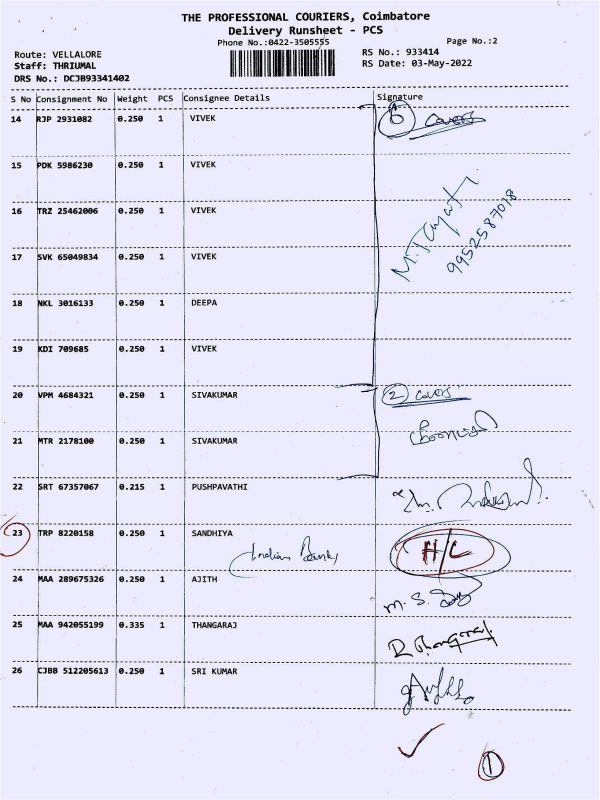 THE PROFESSIONAL COURIERS, Coimbatore
Delivery Runsheet - PCS
Phone No.:0422-3505555
Page No.:2
Route: VELLALORE
RS No.: 933414
Staff: THRIUMAL
RS Date: 03-May-2022
DRS No.: DCJB93341402
S No Consignment No Weight PCS Consignee Details Signature
14 RJP 2931082 0.250 1 VIVEK 6 covers
15 PDK 5986230 0.250 1 VIVEK
16 TRZ 25462006 0.250 1 VIVEK
9952587018
17 SVK 65049834 0.250 1 VIVEK
18 NKL 3016133 0.250 1 DEEPA
19 KDI 709685 0.250 1 VIVEK
20 VPM 4684321 0.250 1 SIVAKUMAR 2 covers
21 MTR 2178100 0.250 1 SIVAKUMAR
22 SRT 67357067 0.215 1 PUSHPAVATHI
23 TRP 8220158 0.250 1 SANDHIYA H/L
Indian Bank
24 MAA 289675326 0.250 1 AJITH
25 MAA 942055199 0.335 1 THANGARAJ
26 CJBB 512205613 0.250 1 SRI KUMAR
1